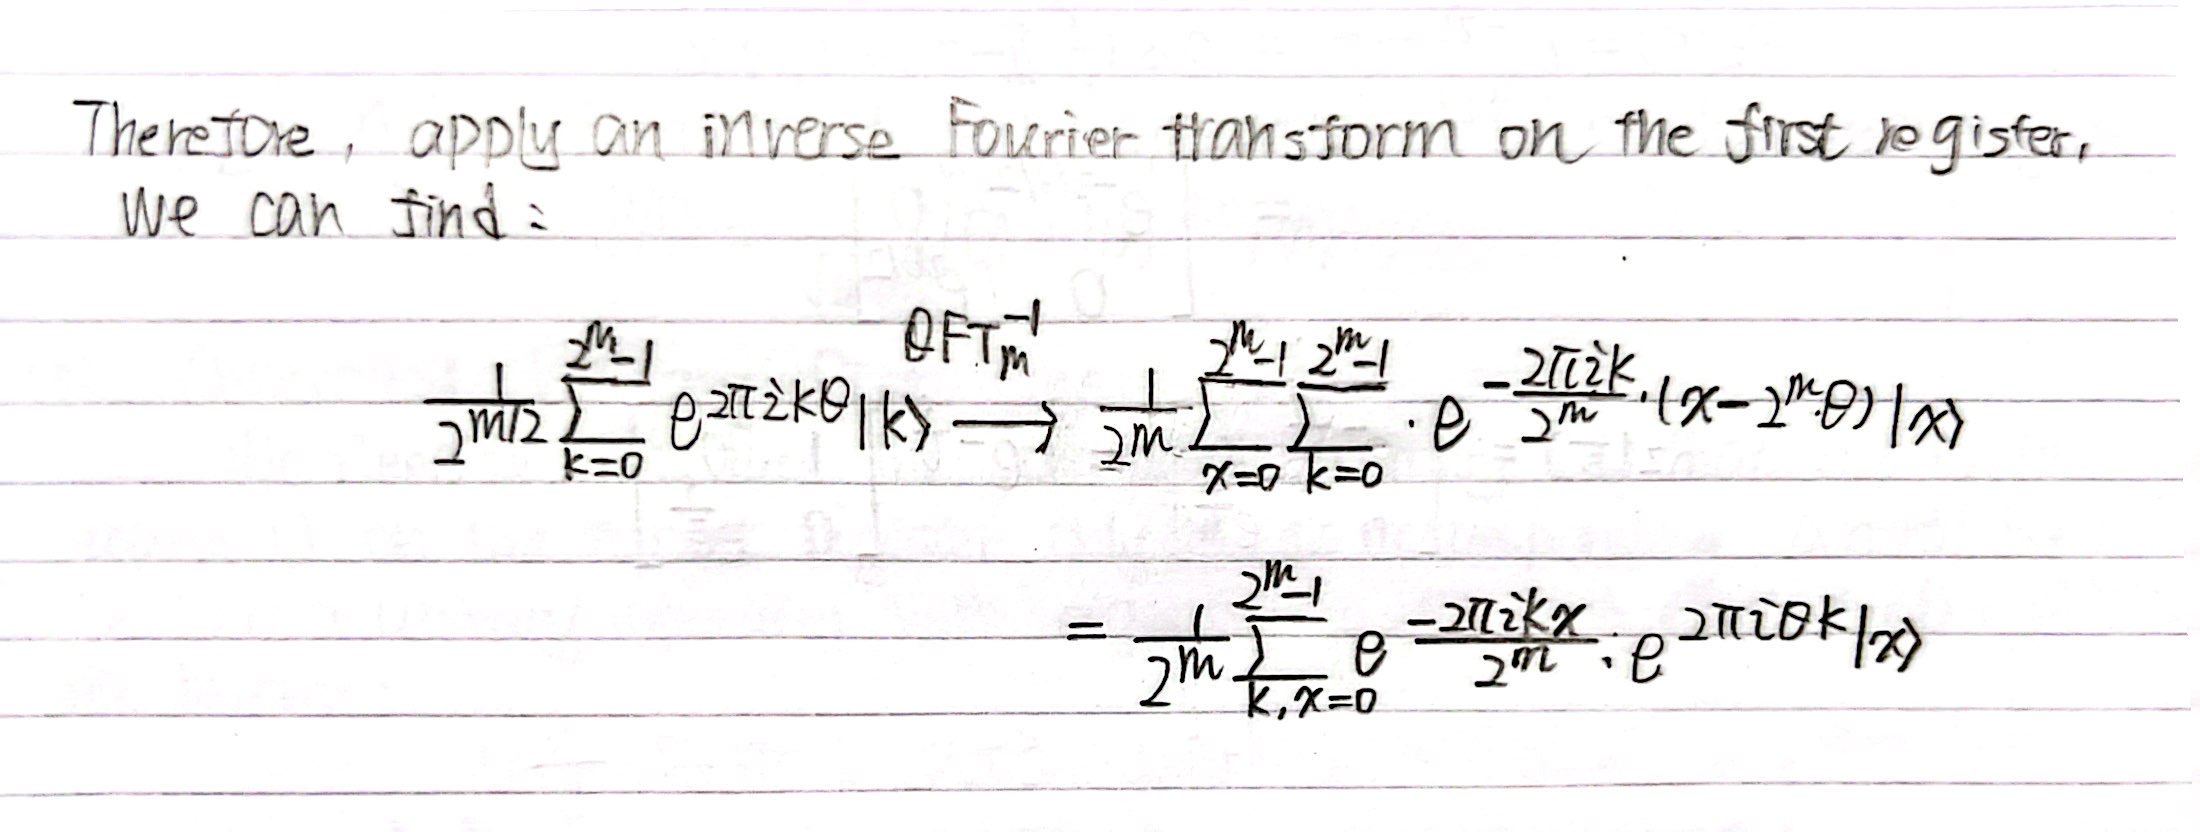 Therefore, apply an inverse Fourier transform on the first register,
we can find:
$\frac{1}{2^{m/2}} \sum_{k=0}^{2^m-1} e^{2\pi i k\theta} |k\rangle \xrightarrow{QFT_m^{-1}} \frac{1}{2^m} \sum_{x=0}^{2^m-1} \sum_{k=0}^{2^m-1} \cdot e^{-\frac{2\pi i k}{2^m} \cdot (x - 2^m \cdot \theta)} |x\rangle$
$= \frac{1}{2^m} \sum_{k,x=0}^{2^m-1} e^{\frac{-2\pi i k x}{2^m}} \cdot e^{2\pi i \theta k} |x\rangle$